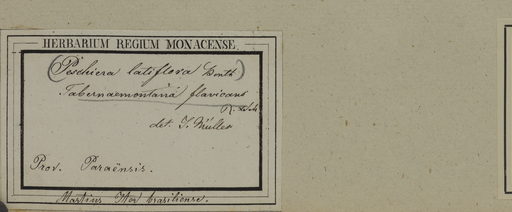 HERBARIUM REGIUM MONACENSE.
(Peschiera latiflora Benth)
Tabernaemontana flavicans
R. Sch
det. J. Müller
Prov. Paraënsis.
Martius Iter brasiliense.